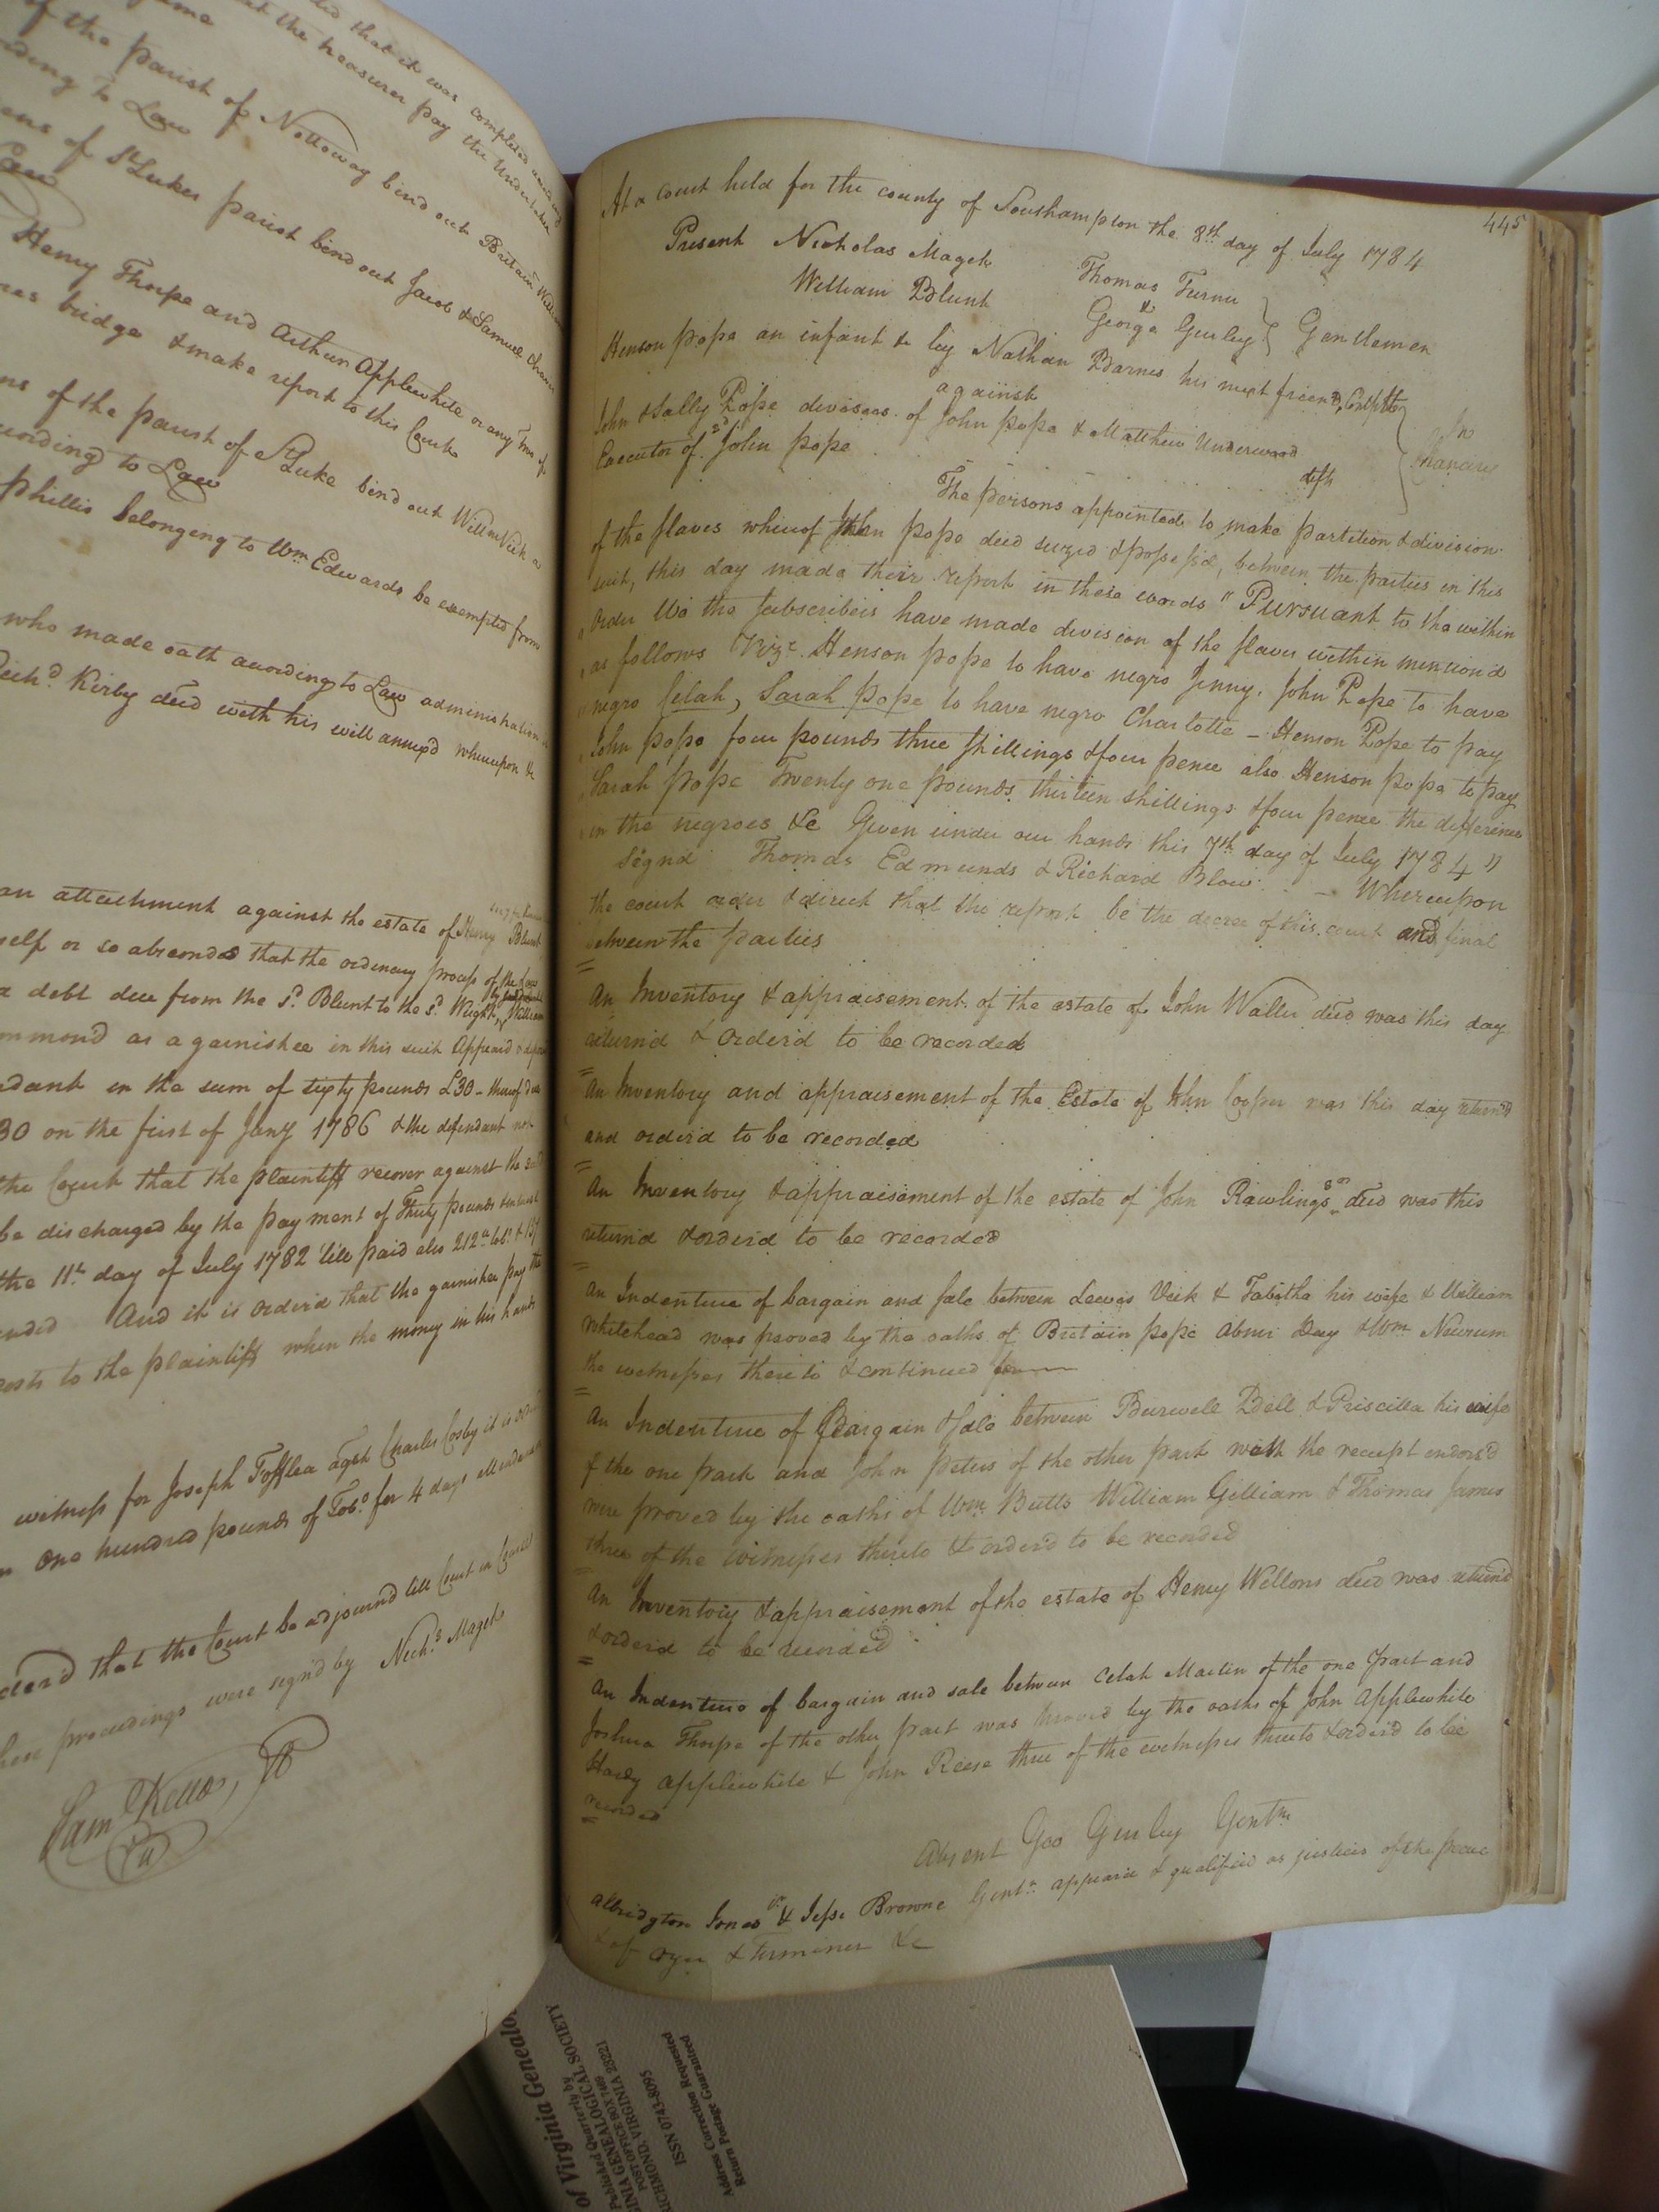 ded that it was completed according
ame at the treasurer pay the Undertaker
of the parish of Nottoway bind out Britain William
ording to Law
ens of St Lukes parish bind out Jacob & Samuel
Law
Henry Thorpe and Arthur Applewhite or any two of
bridge & make report to this Court
ns of the parish of St Luke bind out William Vick a
cording to Law
phillis belonging to Wm Edwards be exempted from
who made oath according to Law administration
Rich.d Kirby decd with his will annex'd whereupon
an attachment against the estate of Henry Blunt
self or so absconds that the ordinary process of the Law
a debt due from the s.d Blunt to the s.d Wright, William
ommon'd as a garnishee in this suit Appeard &
ndant in the sum of sixty pounds £30 - thereof due
30 on the first of Jany 1786 & the defendant not
the Court that the plaintiff recover against the said
be discharged by the payment of Thirty pounds
the 11th day of July 1782 till paid also 212
ended And it is order'd that the garnishee pay the
costs to the plaintiff when the money in his hands
witness for Joseph Tofflea agst Charles Cosby it is
One hundred pounds of Tob.o for 4 days attendance
derd that the Court be adjournd till Court in Course
hese proceedings were sign'd by Nich.s Maget
Sam Kello
445
At a court held for the county of Southampton the 8th day of July 1784
Present Nicholas Maget Thomas Turner
William Blunt & George Gurley Gentlemen
Henson pope an infant &c by Nathan Barnes his next friend, Complt
against In
John & Sally Pope devisees of John pope & Matthew Underwood Chancery
Executor of 2d John pope deft
The persons appointed to make partition & division
of the slaves whereof John pope decd seized & possess'd, between the parties in this
suit, this day made their report in these words "Pursuant to the within
order We the Subscribers have made division of the slaves within mention'd
as follows Vizt. Henson pope to have negro Jenny. John Pope to have
negro Selah, Sarah pope to have negro Charlotte - Henson Pope to pay
John pope four pounds three shillings & four pence also Henson pope to pay
Sarah pope Twenty one pounds thirteen shillings & four pence the difference
in the negroes &c Given under our hands this 7th day of July 1784"
Signd Thomas Edmunds & Richard Blow - Whereupon
the court order & direct that the report be the decree of this court and final
between the parties
An Inventory & appraisement of the estate of John Waller decd was this day
return'd & order'd to be recorded
An Inventory and appraisement of the Estate of John Cooper was this day return'd
and order'd to be recorded
An Inventory & appraisement of the estate of John Rawlings sr decd was this
return'd & order'd to be recorded
An Indenture of bargain and sale between Lewis Vick & Tabitha his wife & William
Whitehead was proved by the oaths of Britain pope Abner Day & Wm Newsum
the witnesses thereto & continued for
An Indenture of Bargain & Sale between Burwell Bell & Priscilla his wife
of the one part and John Peters of the other part with the receipt endors'd
were proved by the oaths of Wm Butts William Gilliam & Thomas James
three of the witnesses thereto & order'd to be recorded
An Inventory & appraisement of the estate of Henry Wellons decd was return'd
& order'd to be recorded
An Indenture of bargain and sale between Celah Martin of the one part and
Joshua Thorpe of the other part was proved by the oaths of John Applewhite
Hardy applewhite & John Reese three of the witnesses thereto & order'd to be
recorded
Absent Geo Gurley Gentn
Albridgton Jones jr & Jesse Browne Gentn appeard & qualified as justices of the peace
& of oyer & Terminer &c
of Virginia Genealo
Published Quarterly by
INIA GENEALOGICAL SOCIETY
POST OFFICE BOX 7469
RICHMOND, VIRGINIA 23221
ISSN 0743-8095
Address Correction Requested
Return Postage Guaranteed